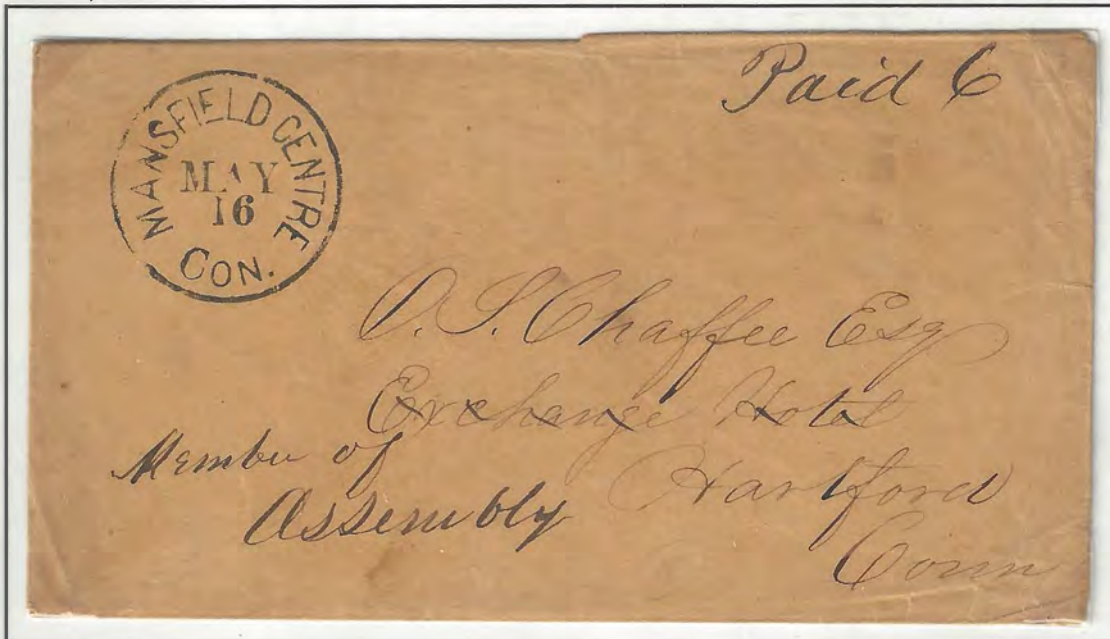 Paid 6
MANSFIELD CENTRE
MAY
16
CON.
O. S. Chaffee Esq
Exchange Hotel
Member of
Assembly
Hartford
Conn